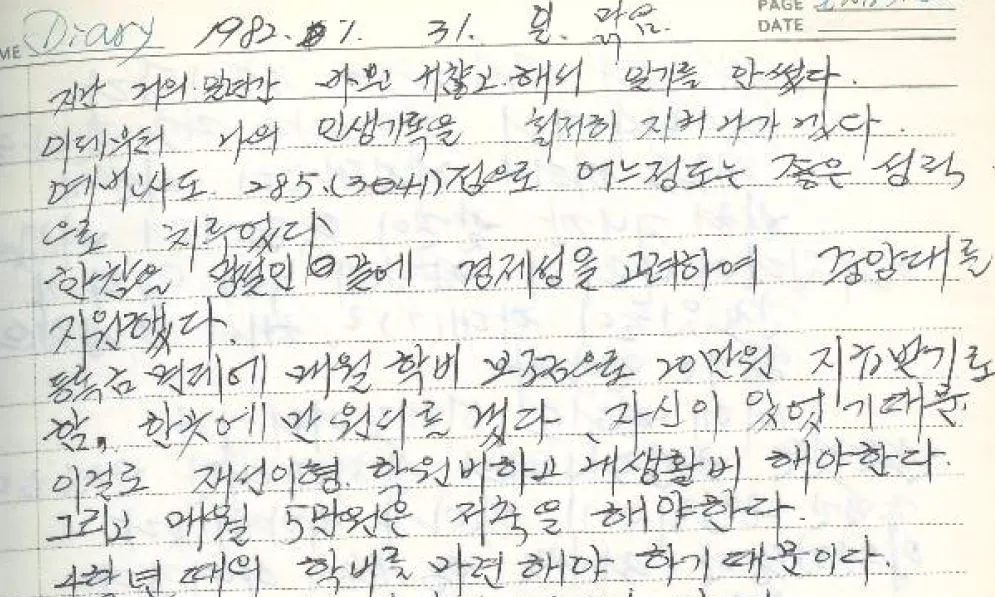 PAGE
DATE
Diary 1982. 1. 31. 일. 맑음.
지난 거의 일년간 바쁘고 귀찮고 해서 일기를 안썼다.
이제부터 나의 인생기록을 철저히 지켜나가겠다.
예비고사도 285.(3041)점으로 어느정도는 좋은 성적
으로 치루었다
한참을 끝에 경제성을 고려하여 중앙대를
지원했다.
등록금 면제에 매월 학비 보조금으로 20만원 지급받기로
함. 한곳에만 원서를 냈다 자신이 있었기때문.
이걸로 재선이형 학원비하고 내생활비 해야한다.
그리고 매월 5만원은 저축을 해야한다.
4학년 때의 학비를 마련해야 하기때문이다.